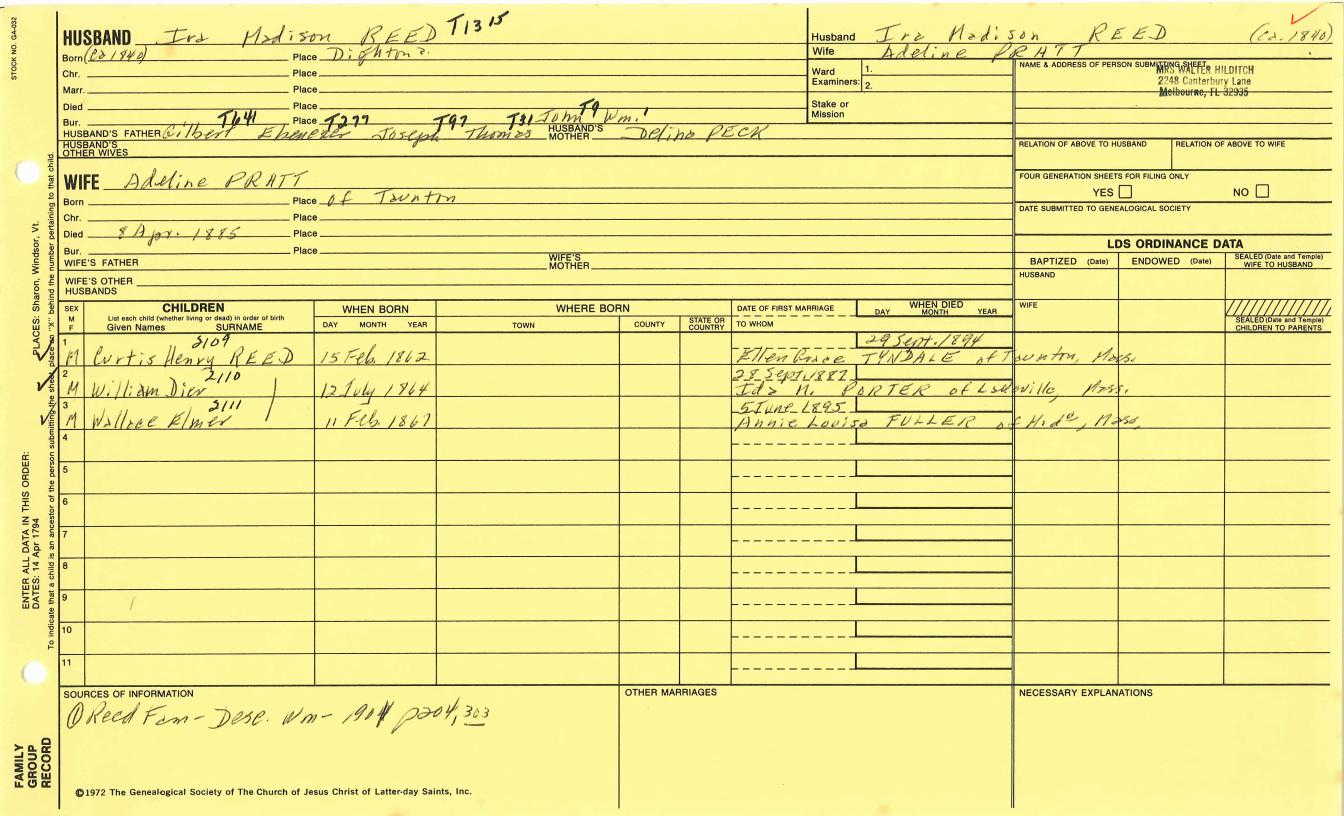 STOCK NO. GA-032
HUSBAND Ira Madison REED T1315
Born (Ca 1840) Place Dighton?
Chr. Place
Marr. Place
Died Place
Bur. Place
T641 T277 T97 T31 T9
HUSBAND'S FATHER Gilbert Ebenezer Joseph Thomas John Wm.1 HUSBAND'S MOTHER Delina PECK
HUSBAND'S OTHER WIVES
Husband Ira Madison REED (Ca. 1840)
Wife Adeline PRATT
Ward Examiners: 1.
2.
Stake or Mission
NAME & ADDRESS OF PERSON SUBMITTING SHEET
MRS WALTER HILDITCH
2248 Canterbury Lane
Melbourne, FL 32935
RELATION OF ABOVE TO HUSBAND RELATION OF ABOVE TO WIFE
FOUR GENERATION SHEETS FOR FILING ONLY
YES NO
DATE SUBMITTED TO GENEALOGICAL SOCIETY
WIFE Adeline PRATT
Born Place of Taunton
Chr. Place
Died 8 Apr. 1885 Place
Bur. Place
WIFE'S FATHER WIFE'S MOTHER
WIFE'S OTHER HUSBANDS
LDS ORDINANCE DATA
BAPTIZED (Date) ENDOWED (Date) SEALED (Date and Temple) WIFE TO HUSBAND
HUSBAND
WIFE
SEALED (Date and Temple) CHILDREN TO PARENTS
SEX M F
CHILDREN
List each child (whether living or dead) in order of birth
Given Names SURNAME
WHEN BORN
DAY MONTH YEAR
WHERE BORN
TOWN COUNTY STATE OR COUNTRY
DATE OF FIRST MARRIAGE
TO WHOM
WHEN DIED
DAY MONTH YEAR
1 2109 29 Sept. 1894
M Curtis Henry REED 15 Feb. 1862 Ellen Grace TYNDALE of Taunton, Mass.
2 2110 28 Sept. 1887
M William Dier 12 July 1864 Ida N. PORTER of Mass.
3 2111 5 June 1895
M Wallace Elmer 11 Feb. 1867 Annie Louise FULLER of Mass.
4
5
6
7
8
9
10
11
SOURCES OF INFORMATION
① Reed Fam - Desc. Wm - 1901 p204, 303
OTHER MARRIAGES
NECESSARY EXPLANATIONS
©1972 The Genealogical Society of The Church of Jesus Christ of Latter-day Saints, Inc.
FAMILY GROUP RECORD
ENTER ALL DATA IN THIS ORDER:
DATES: 14 Apr 1794
PLACES: Sharon, Windsor, Vt.
To indicate that a child is an ancestor of the person submitting the sheet, place an "X" behind the number pertaining to that child.